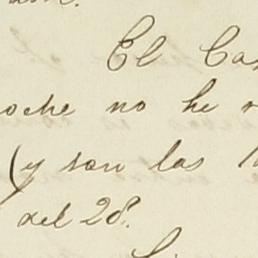 El Ca
oche no he
(y son las
del 28.